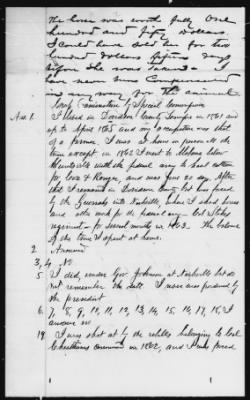 The horse was worth fully One
hundred and fifty Dollars
I could have sold him for two
hundred dollars fifteen days
before she was taken I
have never been Compensated
in any way for the animal
Cross Examination by Special Commissioner
Ans. 1. I lived in Davidson County Tennessee in 1861 and
up to April 1865 and my occupation was that
of a farmer. I was at home in person all the
time except in 1862 I went to Helena below
Memphis with the federal army to haul cotton
for Love & Ranger, and was gone 60 days. After
that I remained in Davidson County but was forced
by the Guerrilla into Nashville, when I acted
and other work for the federal army - 1st States
regiment - for several months in 1863. The balance
of the time I spent at home.
2. Answered
3, 4, No
5 I did, under Gov. Johnson at Nashville but do
not remember the date. I never was pardoned by
the president
6, 7, 8, 9, 10, 11, 12, 13, 14, 15, 16, 17, 18, I
answer no
19. I was shot at by the rebels belonging to Col
Cheathams command in 1862, and I was forced